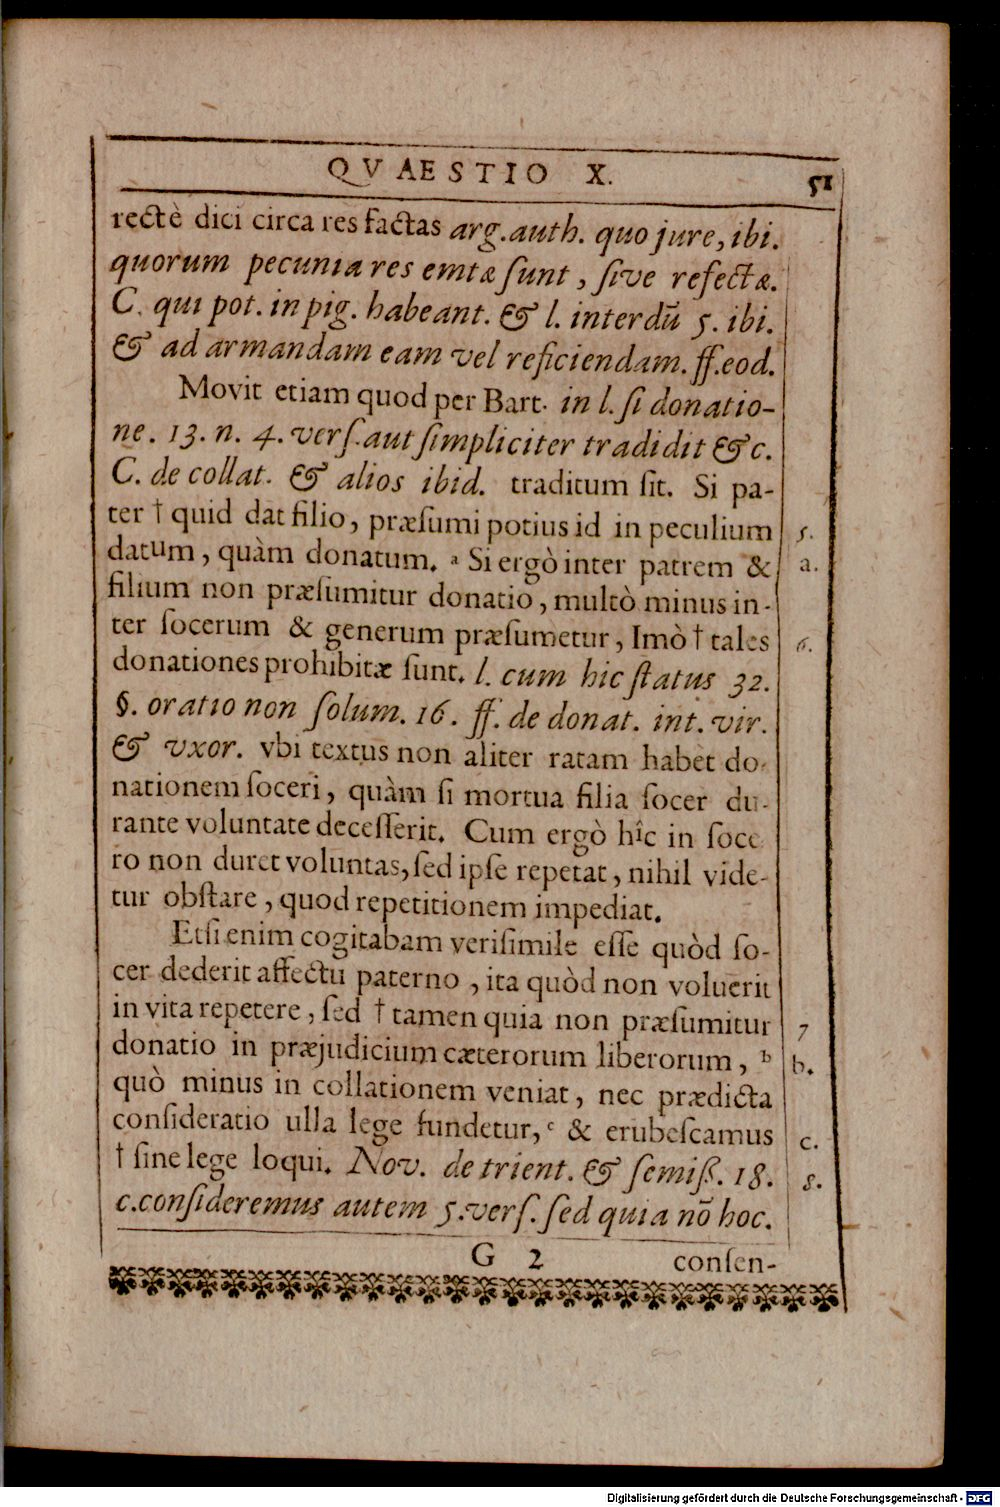 QVAESTIO X. 51
rectè dici circa res factas arg. auth. quo jure, ibi.
quorum pecunia res emtæ ſunt, ſive refectæ.
C. qui pot. in pig. habeant. & l. interdũ 5. ibi.
& ad armandam eam vel reficiendam. ff. eod.
Movit etiam quod per Bart. in l. ſi donatio-
ne. 13. n. 4. verſ. aut ſimpliciter tradidit &c.
C. de collat. & alios ibid. traditum ſit. Si pa-
ter † quid dat filio, præſumi potius id in peculium 5.
datum, quàm donatum. ᵃ Si ergò inter patrem & a.
filium non præſumitur donatio, multò minus in-
ter ſocerum & generum præſumetur, Imò † tales 6.
donationes prohibitæ ſunt. l. cum hic ſtatus 32.
§. oratio non ſolum. 16. ff. de donat. int. vir.
& vxor. vbi textus non aliter ratam habet do-
nationem ſoceri, quàm ſi mortua filia ſocer du-
rante voluntate deceſſerit. Cum ergò hîc in ſoce
ro non duret voluntas, ſed ipſe repetat, nihil vide-
tur obſtare, quod repetitionem impediat.
Etſi enim cogitabam veriſimile eſſe quòd ſo-
cer dederit affectu paterno, ita quòd non voluerit
in vita repetere, ſed † tamen quia non præſumitur 7
donatio in præjudicium cæterorum liberorum, ᵇ b.
quò minus in collationem veniat, nec prædicta
conſideratio ulla lege fundetur, ᶜ & erubeſcamus c.
† ſine lege loqui. Nov. de trient. & ſemiß. 18. 8.
c. conſideremus autem 5. verſ. ſed quia nõ hoc.
G 2 conſen-
Digitalisierung gefördert durch die Deutsche Forschungsgemeinschaft - DFG